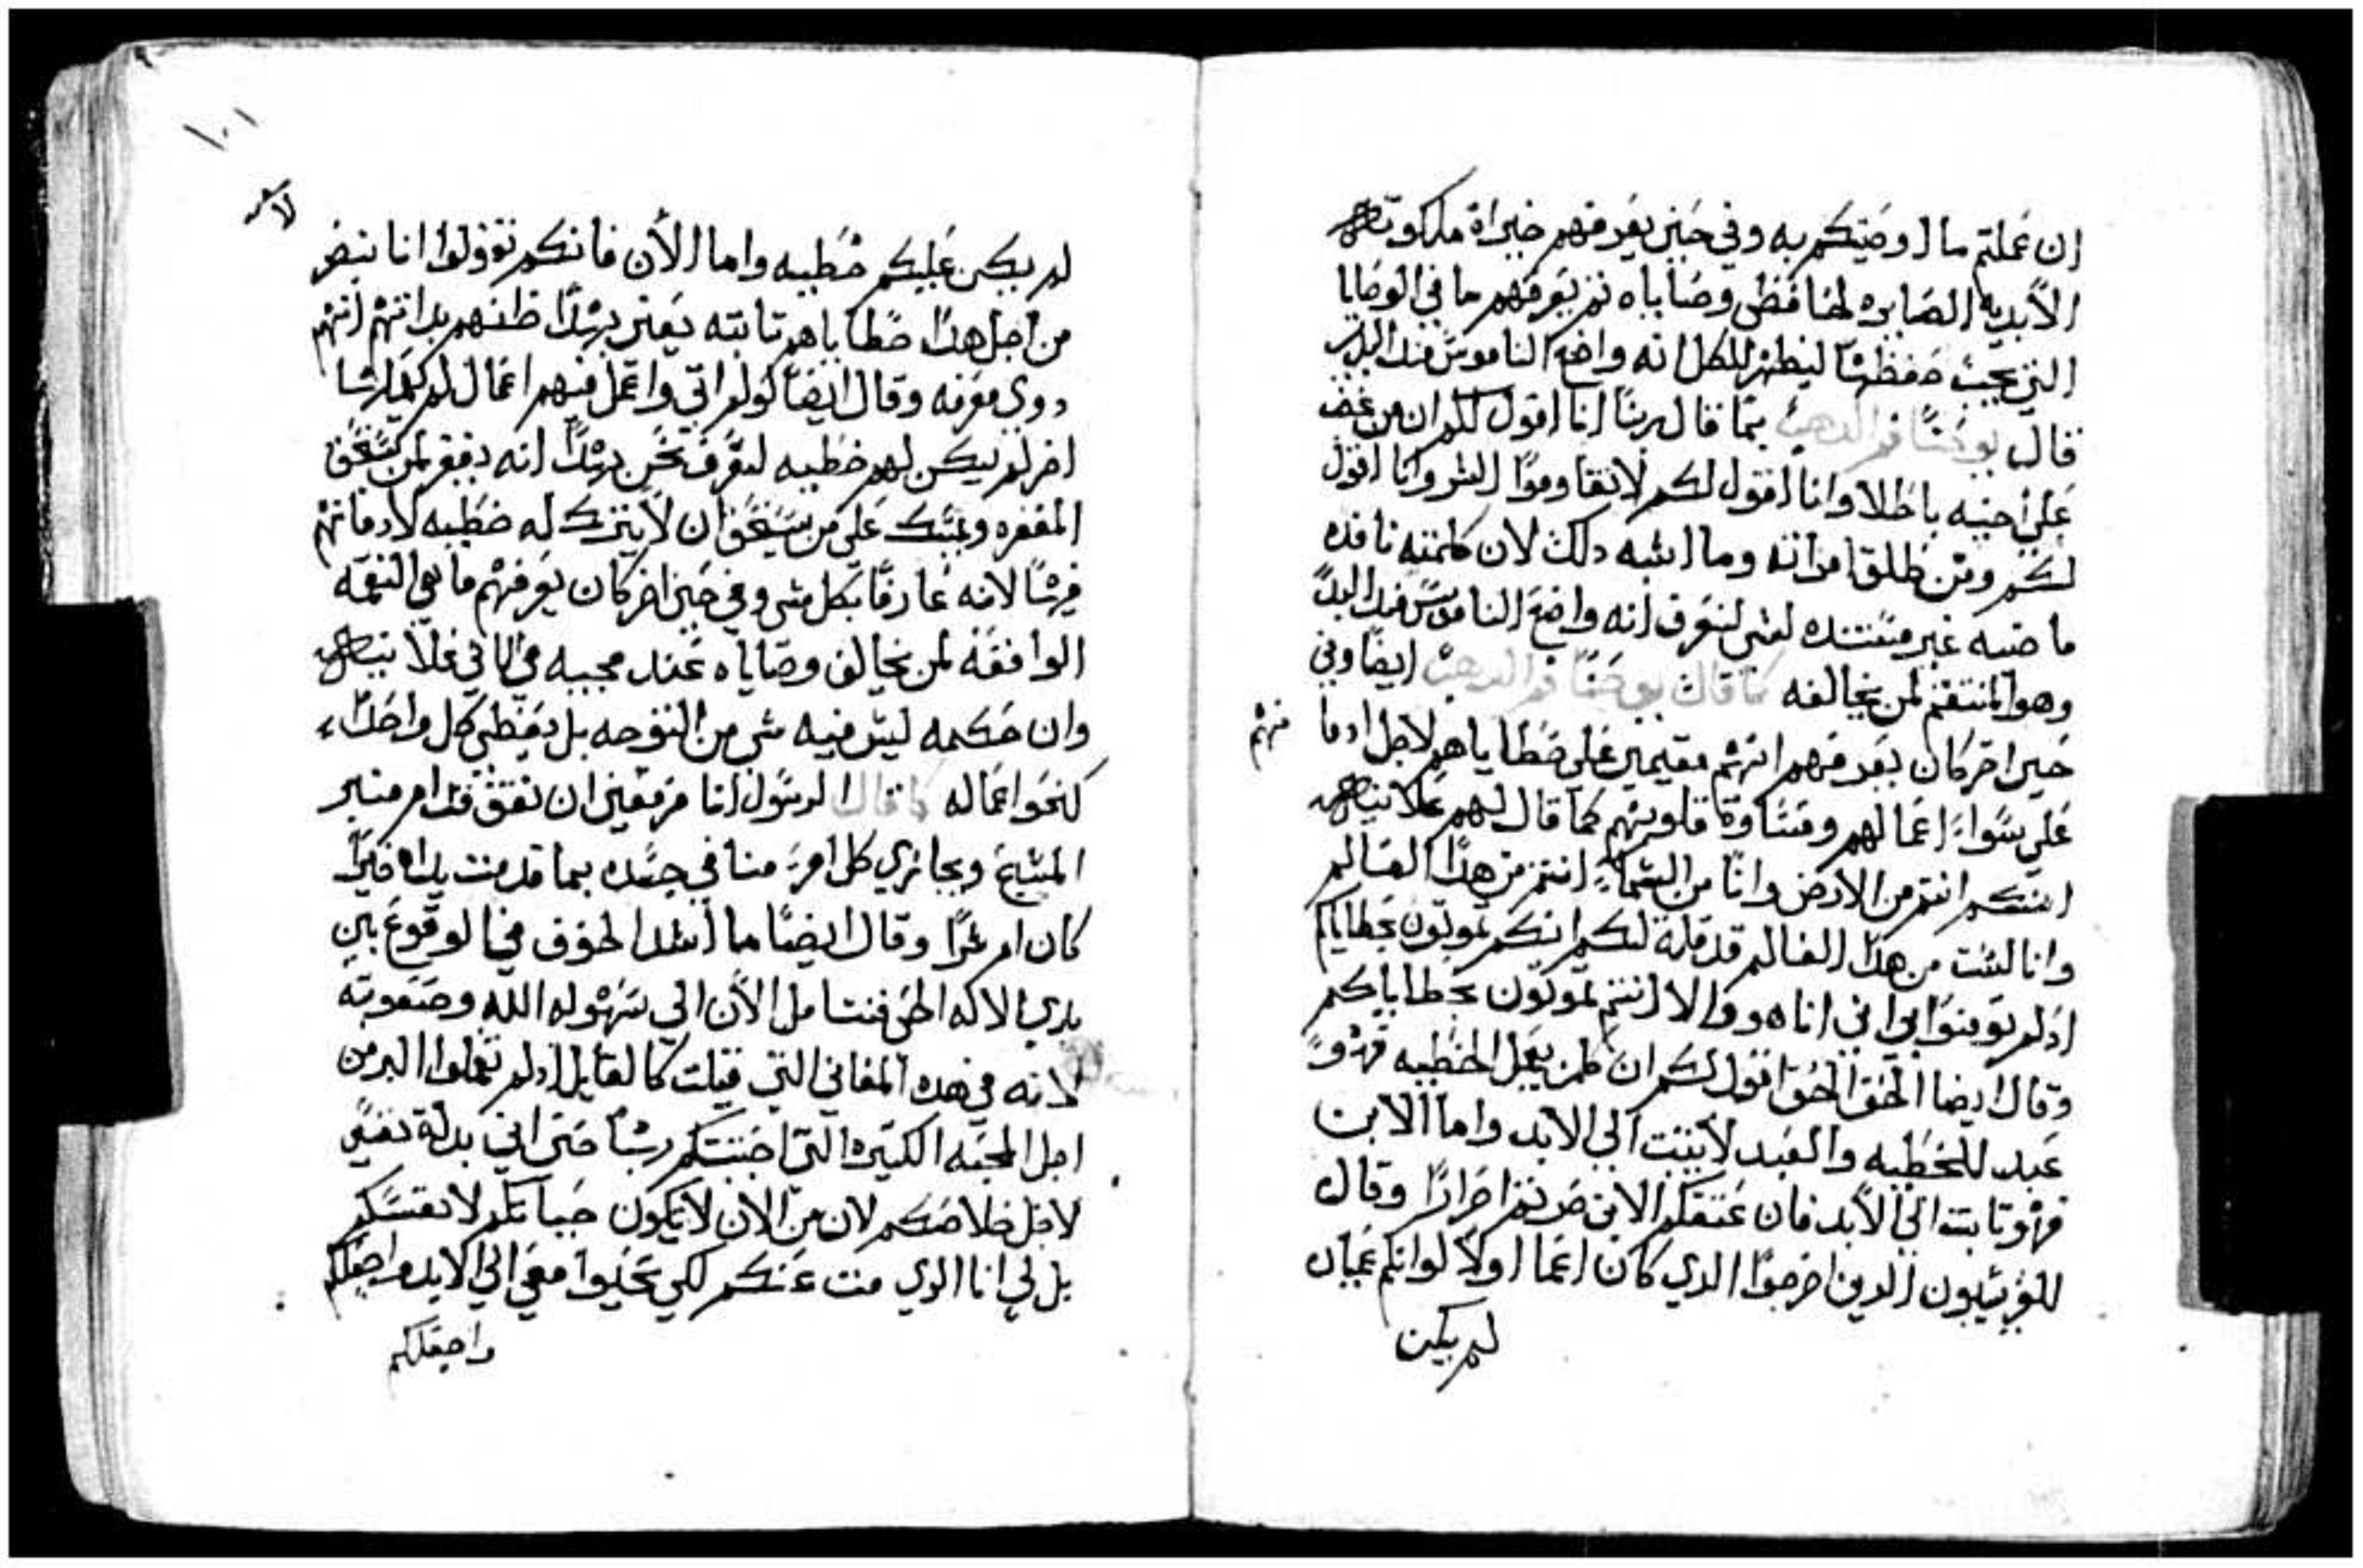 ان عملتم ما اوصيتكم به وفي حين يعرفهم خيراة ملكوته
الأبديه الصايره لحافظى وصاياه ثم يعرفهم ما في الوصايا
التي يجب حفظها ليظهر للكل انه واضع الناموس منذ البدء
قال يوحنا فم الدهب بما قال ربنا انا اقول لكم ان من غضب
على اخيه باطلا وانا اقول لكم لا تقاوموا الشر وانا اقول
لكم ومن طلق امراته وما اشبه دلك لان كلمته نافده
ماضيه غير مستنده لشى لنعرف انه واضع الناموس منذ البدء
وهو المنتقم لمن يخالفه كما قال يوحنا فم الدهب ايضا وفي
حين اخر كان يعرفهم انهم مقيمين على خطاياهم لاجل ادمانهم
على سواء اعمالهم وقساوة قلوبهم كما قال لهم علانيه
انكم انتم من الارض وانا من السماء انتم من هدا العالم
وانا لست من هدا العالم قد قلة لكم انكم تموتون بخطاياكم
اد لم تومنوا بي اني انا هو والا انتم تموتون بخطاياكم
وقال ايضا الحق الحق اقول لكم ان كلمن يعمل الخطيه فهو
عبد للخطيه والعبد لا يثبت الي الابد واما الابن
فهو ثابت الي الأبد فان عتقكم الابن صرتم احرارا وقال
للفريسيون الدين اخرجوا الدي كان اعما اولا لو انكم عميان
لم يكن
١٠١
لم يكن عليكم خطيه واما الأن فانكم تقولوا انا نبصر
من اجل هدا خطاياهم تابته يعني بهدا ظنهم بداتهم انهم
دوي معرفه وقال ايضا لولم اتي واعمل فيهم اعمال لم يعملها
اخر لم يكن لهم خطيه لنعرف نحن بهدا انه يغفر لمن يستحق
المغفره ويمسك على من يستحق ان لا يترك له خطيه لادمانهم
فيها لانه عارفا بكل شى وفي حين اخر كان يعرفهم ما هي النقمه
الواقفه لمن يخالف وصاياه عند مجيه في علانيه
وان حكمه ليس فيه شى من التوجه بل يعطي كل واحدا
كنحو اعماله كما قال الرسول انا مزمعين ان نقف قدام منبر
المسيح ويجازي كل امرء منا في جسده بما قدمت يداه خيرا
كان ام شرا وقال ايضا ما اشد الخوف في الوقوع بين
يدي الاله الحى فنتامل الأن الي سهولة الله وصعوبته
لانه في هده المعاني التي قيلت كالقايل اد لم تعملوا البر من
اجل المحبه الكتيره التي احببتكم بها حتى اني بدلة نفسي
لاجل خلاصكم لان من الان لا تكون حياتكم لانفسكم
بل لي انا الدي مت عنكم لكي تحيوا معي الي الابد واجعلكم
واجعلكم